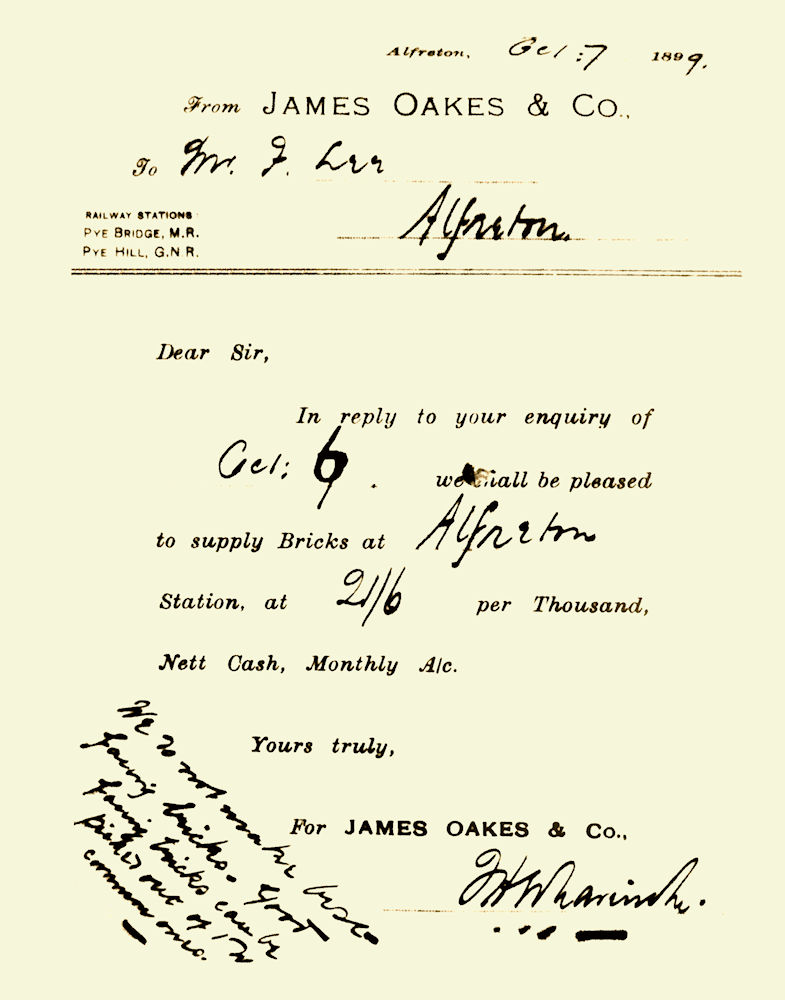 Alfreton, Oct: 7 1899.
From JAMES OAKES & Co.,
To Mr. F. Lee
Alfreton.
RAILWAY STATIONS:
PYE BRIDGE, M.R.
PYE HILL, G.N.R.
Dear Sir,
In reply to your enquiry of
Oct: 6. we shall be pleased
to supply Bricks at Alfreton
Station, at 21/6 per Thousand,
Nett Cash, Monthly A/c.
Yours truly,
For JAMES OAKES & Co.,
We do not make best
facing bricks. Good
facing bricks can be
picked out of the
common ones.